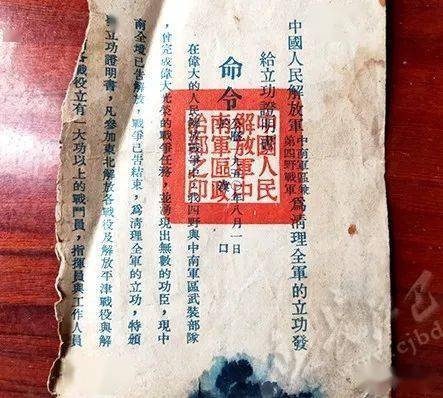 中國人民解放軍中南軍區兼第四野戰軍為清理全軍的立功發
給立功證明書
命令
九五〇年八月一日
口
在偉大的人民解放戰爭中,我四野與中南軍區武裝部隊
,曾完成偉大光榮的戰爭任務,並湧現出無數的功臣,現中
南全境已告解放,戰爭已告結束,為清理全軍的立功,特頒
立功證明書,凡參加東北解放各戰役及解放平津戰役與解
戰役立有一大功以上的戰鬥員,指揮員與工作人員
中國人民
解放軍中
南軍區政
治部之印